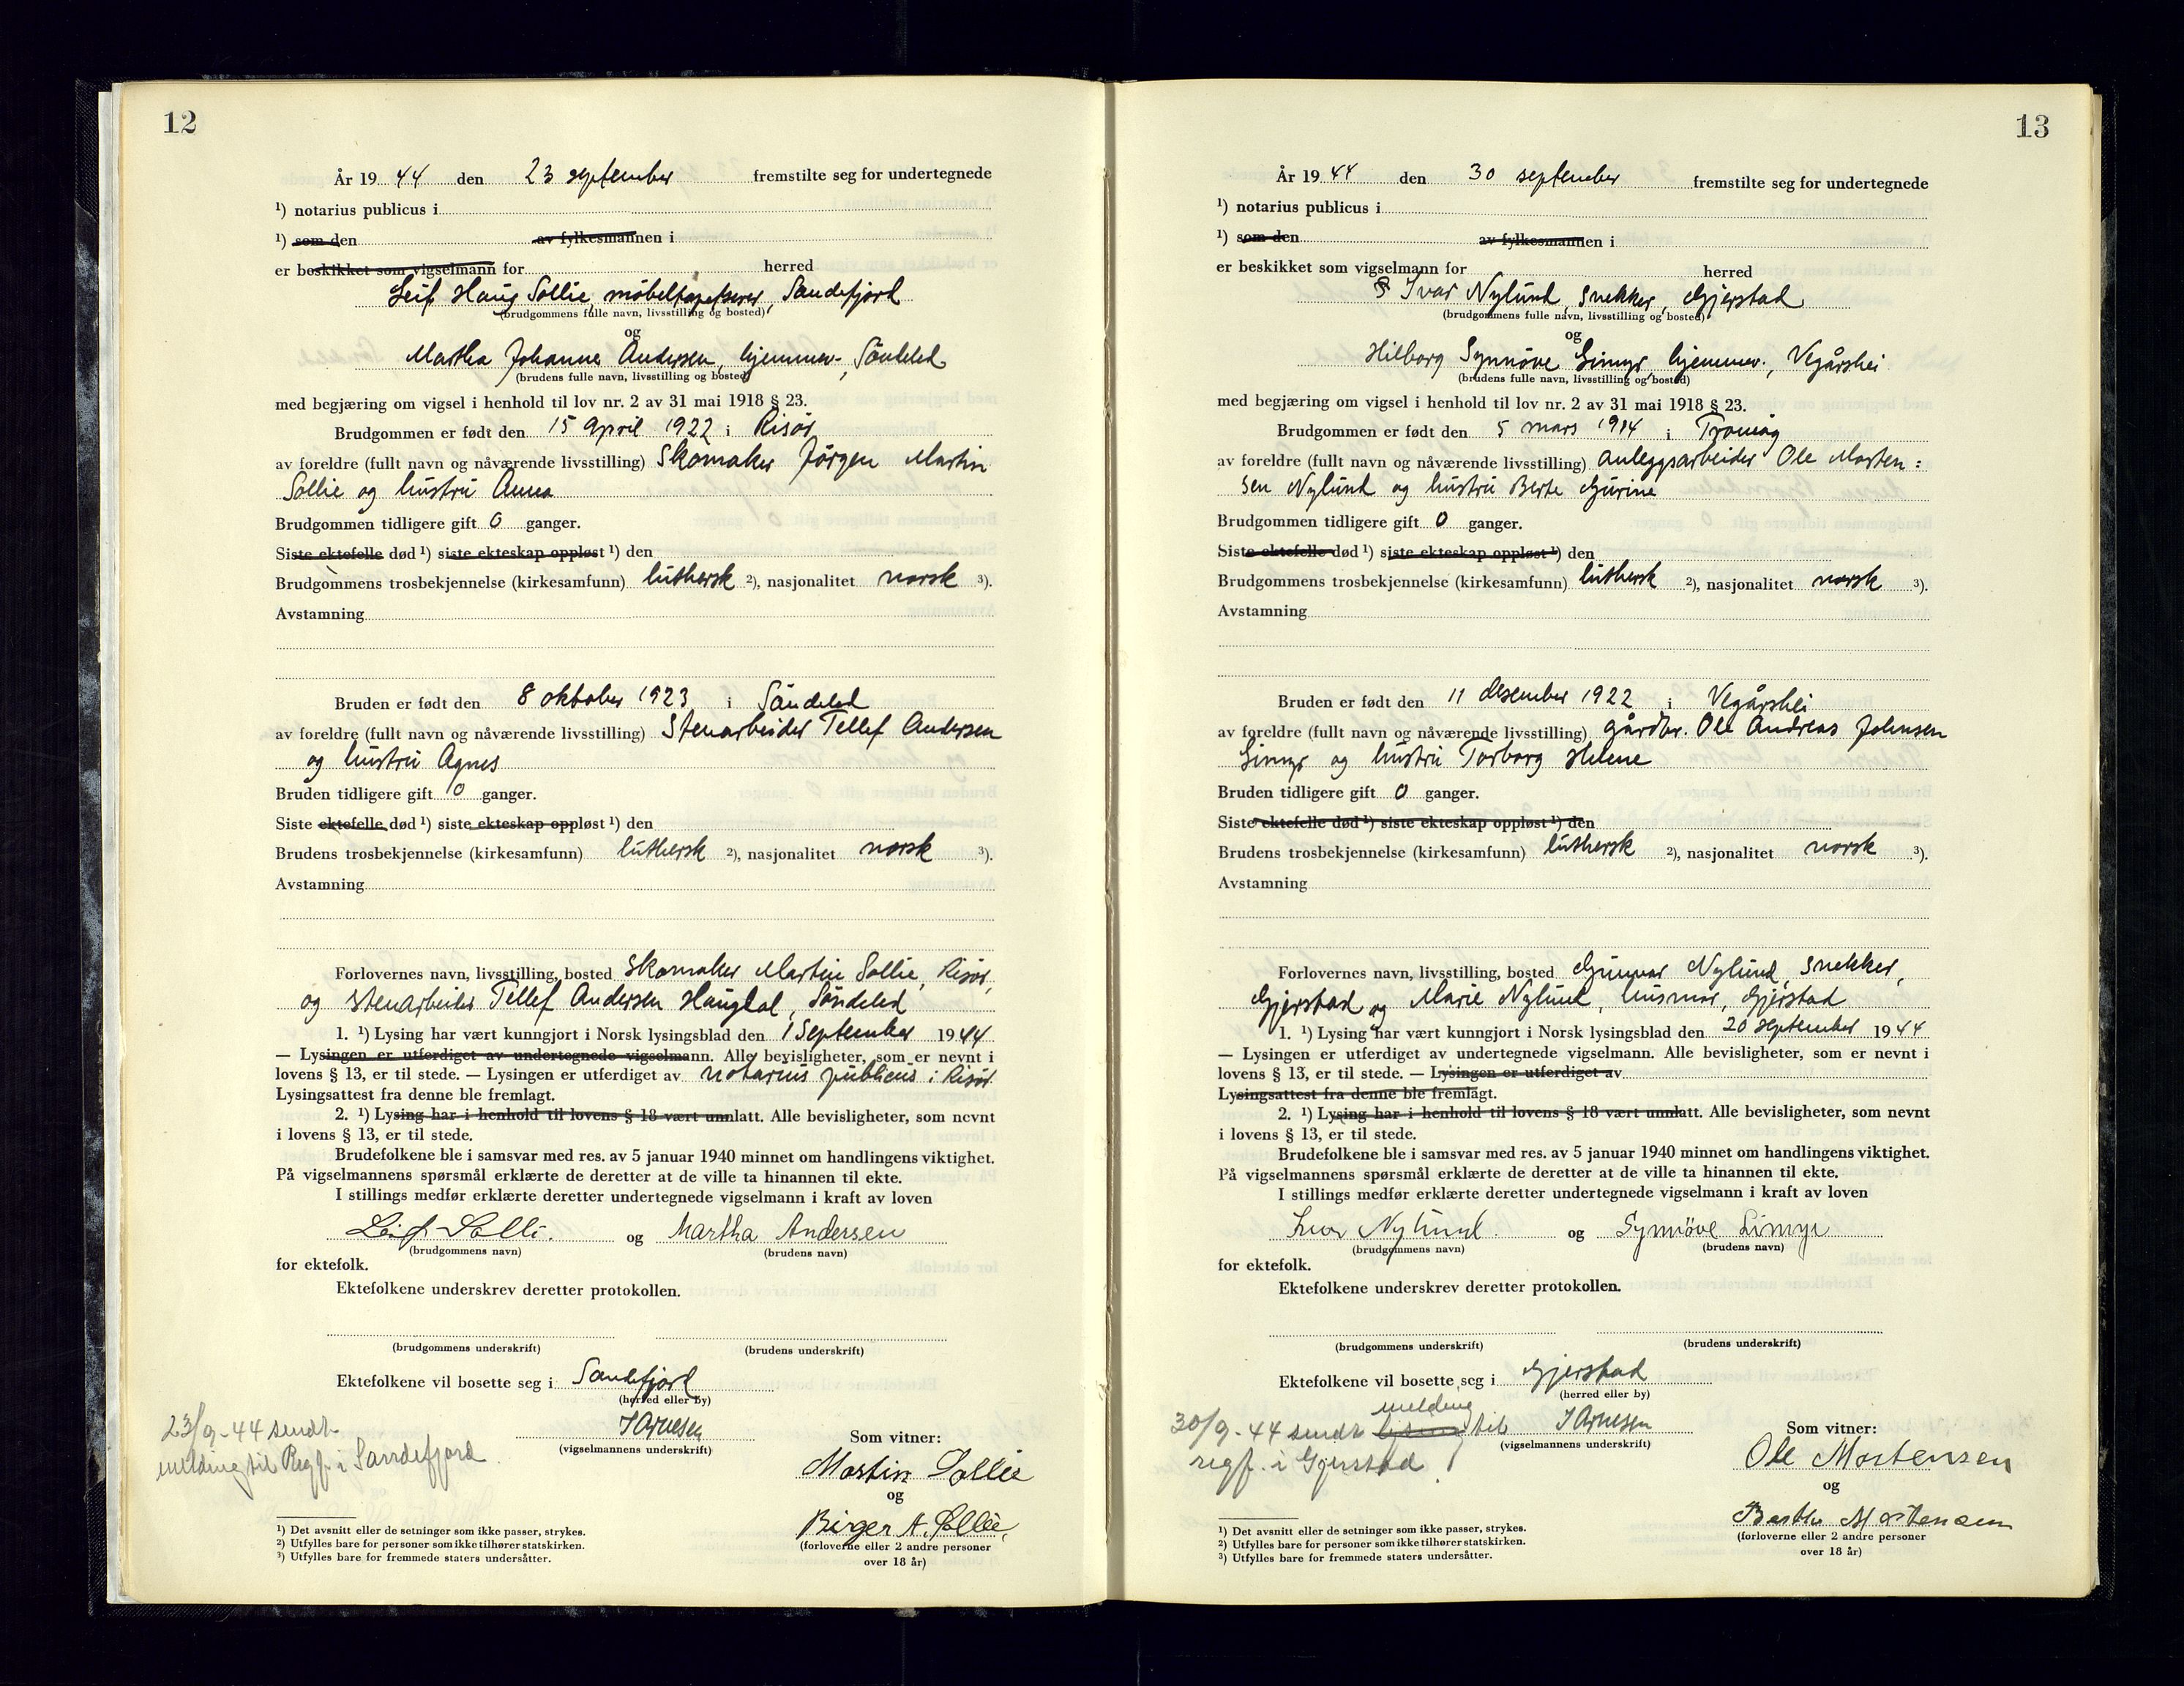 12
År 19 44 den 23 september fremstilte seg for undertegnede
¹) notarius publicus i
¹) som den av fylkesmannen i
er beskikket som vigselmann for herred
Leif Hans Sollie, møbeltapetserer, Sandefjord
(brudgommens fulle navn, livsstilling og bosted)
og
Martha Johanne Andersen, hjemmev., Söndeled
(brudens fulle navn, livsstilling og bosted)
med begjæring om vigsel i henhold til lov nr. 2 av 31 mai 1918 § 23.
Brudgommen er født den 15 April 1922 i Risör
av foreldre (fullt navn og nåværende livsstilling) Skomaker Jörgen Martin
Sollie og hustru Anna
Brudgommen tidligere gift 0 ganger.
Siste ektefelle død ¹) siste ekteskap oppløst ¹) den
Brudgommens trosbekjennelse (kirkesamfunn) luthersk ²), nasjonalitet norsk ³).
Avstamning
Bruden er født den 8 oktober 1923 i Söndeled
av foreldre (fullt navn og nåværende livsstilling) Stenarbeider Tellef Andersen
og hustru Agnes
Bruden tidligere gift 0 ganger.
Siste ektefelle død ¹) siste ekteskap oppløst ¹) den
Brudens trosbekjennelse (kirkesamfunn) luthersk ²), nasjonalitet norsk ³).
Avstamning
Forlovernes navn, livsstilling, bosted Skomaker Martin Sollie, Risör,
og stenarbeider Tellef Andersen Haugdal, Söndeled
1. ¹) Lysing har vært kunngjort i Norsk lysingsblad den 1 September 1944
— Lysingen er utferdiget av undertegnede vigselmann. Alle bevisligheter, som er nevnt i
lovens § 13, er til stede. — Lysingen er utferdiget av notarius publicus i Risör
Lysingsattest fra denne ble fremlagt.
2. ¹) Lysing har i henhold til lovens § 18 vært unnlatt. Alle bevisligheter, som nevnt
i lovens § 13, er til stede.
Brudefolkene ble i samsvar med res. av 5 januar 1940 minnet om handlingens viktighet.
På vigselmannens spørsmål erklærte de deretter at de ville ta hinannen til ekte.
I stillings medfør erklærte deretter undertegnede vigselmann i kraft av loven
Leif Solli. og Martha Andersen
(brudgommens navn) (brudens navn)
for ektefolk.
Ektefolkene underskrev deretter protokollen.
(brudgommens underskrift) (brudens underskrift)
Ektefolkene vil bosette seg i Sandefjord
(herred eller by)
23/9-44 sendt
melding til Regf. i Sandefjord
J Arnesen
(vigselmannens underskrift)
Som vitner:
Martin Sollie
og
Birger A. Sollie,
(forloverne eller 2 andre personer
over 18 år)
¹) Det avsnitt eller de setninger som ikke passer, strykes.
²) Utfylles bare for personer som ikke tilhører statskirken.
³) Utfylles bare for fremmede staters undersåtter.
13
År 19 44 den 30 september fremstilte seg for undertegnede
¹) notarius publicus i
¹) som den av fylkesmannen i
er beskikket som vigselmann for herred
Ivar Nylund, snekker, Gjerstad
(brudgommens fulle navn, livsstilling og bosted)
og
Hilborg Synnöve Limyr, hjemmev., Vegårshei
(brudens fulle navn, livsstilling og bosted)
med begjæring om vigsel i henhold til lov nr. 2 av 31 mai 1918 § 23.
Brudgommen er født den 5 mars 1914 i Tromöy
av foreldre (fullt navn og nåværende livsstilling) anleggsarbeider Ole Morten:
sen Nylund og hustru Berte Gurine
Brudgommen tidligere gift 0 ganger.
Siste ektefelle død ¹) siste ekteskap oppløst ¹) den
Brudgommens trosbekjennelse (kirkesamfunn) luthersk ²), nasjonalitet norsk ³).
Avstamning
Bruden er født den 11 desember 1922 i Vegårshei
av foreldre (fullt navn og nåværende livsstilling) gårdbr. Ole Andreas Johnsen
Limyr og hustru Torborg Helene
Bruden tidligere gift 0 ganger.
Siste ektefelle død ¹) siste ekteskap oppløst ¹) den
Brudens trosbekjennelse (kirkesamfunn) luthersk ²), nasjonalitet norsk ³).
Avstamning
Forlovernes navn, livsstilling, bosted Gunvar Nylund, snekker,
Gjerstad og Marie Nylund, husmor, Gjerstad
1. ¹) Lysing har vært kunngjort i Norsk lysingsblad den 20 september 1944
— Lysingen er utferdiget av undertegnede vigselmann. Alle bevisligheter, som er nevnt i
lovens § 13, er til stede. — Lysingen er utferdiget av
Lysingsattest fra denne ble fremlagt.
2. ¹) Lysing har i henhold til lovens § 18 vært unnlatt. Alle bevisligheter, som nevnt
i lovens § 13, er til stede.
Brudefolkene ble i samsvar med res. av 5 januar 1940 minnet om handlingens viktighet.
På vigselmannens spørsmål erklærte de deretter at de ville ta hinannen til ekte.
I stillings medfør erklærte deretter undertegnede vigselmann i kraft av loven
Ivar Nylund. og Synnöve Limyr
(brudgommens navn) (brudens navn)
for ektefolk.
Ektefolkene underskrev deretter protokollen.
(brudgommens underskrift) (brudens underskrift)
Ektefolkene vil bosette seg i Gjerstad
(herred eller by)
melding
30/9-44 sendt til
regf. i Gjerstad
J Arnesen
(vigselmannens underskrift)
Som vitner:
Ole Mortensen
og
Berthe Mortensen
(forloverne eller 2 andre personer
over 18 år)
¹) Det avsnitt eller de setninger som ikke passer, strykes.
²) Utfylles bare for personer som ikke tilhører statskirken.
³) Utfylles bare for fremmede staters undersåtter.